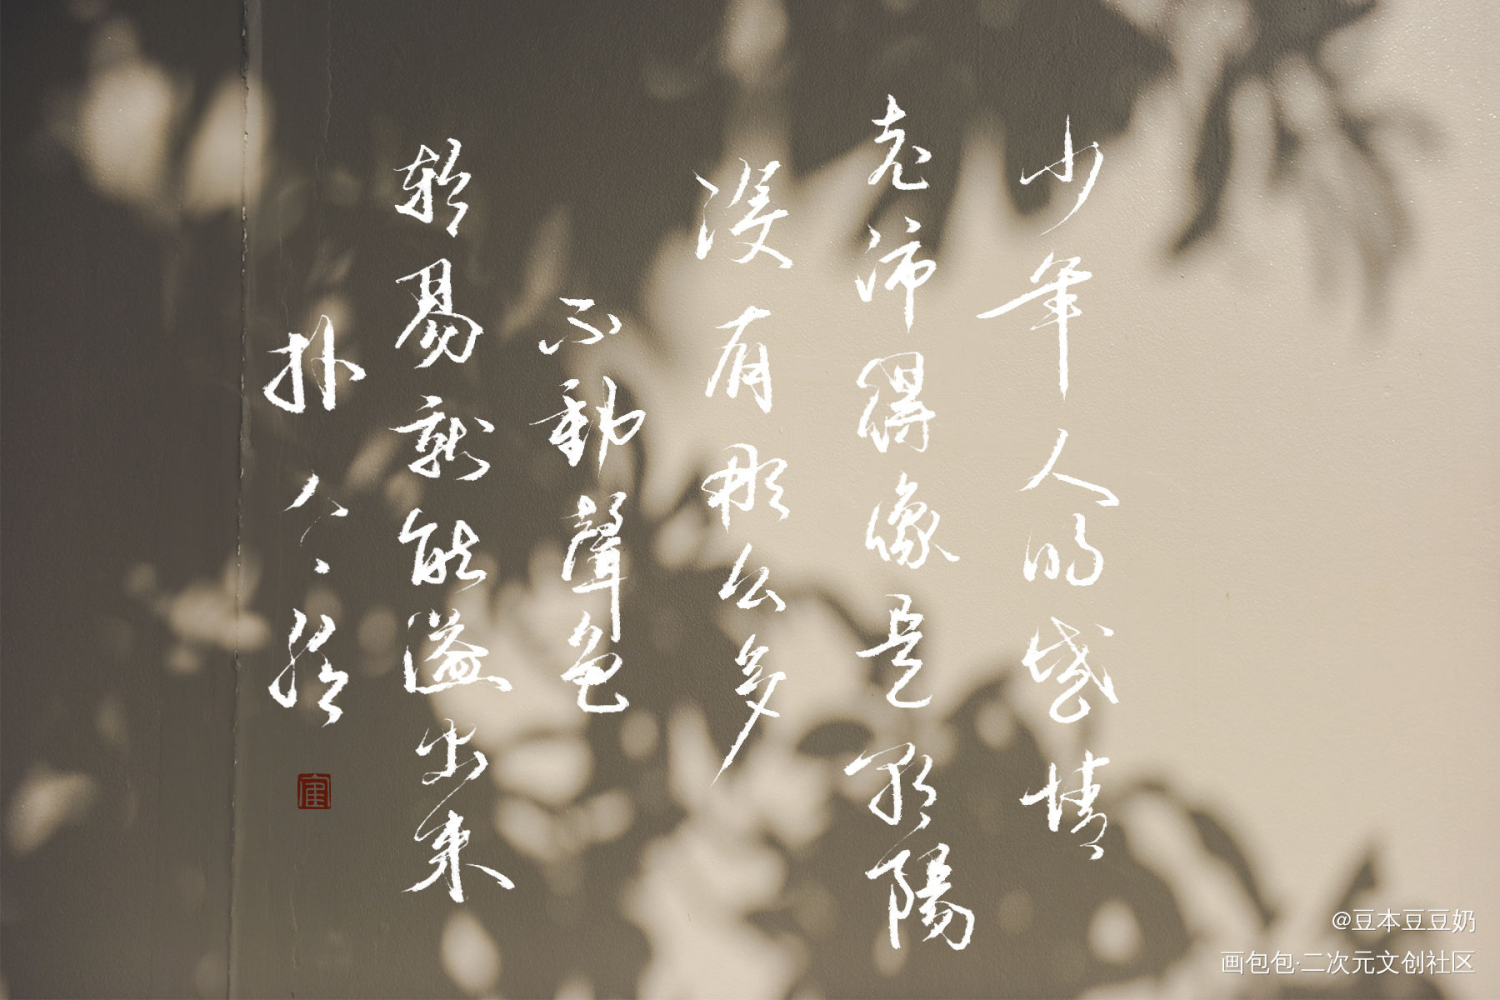 少年人的感情
充沛得像是骄陽
没有那么多
不動聲色
轻易就能溢出来
扑人一脸
@豆本豆豆奶
画包包·二次元文创社区